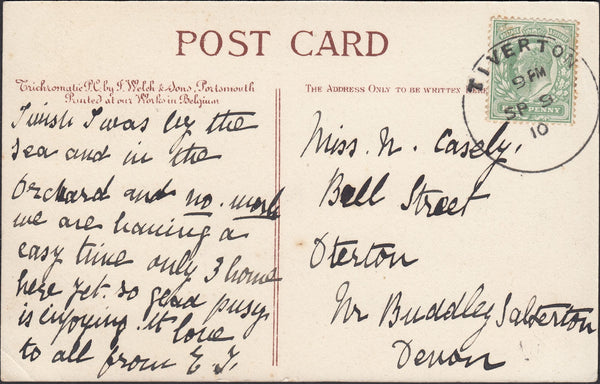 POST CARD
Trichromatic P.C. by J. Welch & Sons, Portsmouth
Printed at our Works in Belgium
THE ADDRESS ONLY TO BE WRITTEN HERE
TIVERTON
9 PM
SP 8
10
PENNY
I wish I was by the
sea and in the
orchard and no. work
we are having a
easy time only 3 home
here yet. so good pusy
is enjoying it love
to all from E J.
Miss. N. Casely.
Ball Street
Oterton
Nr Buddley Salterton
Devon